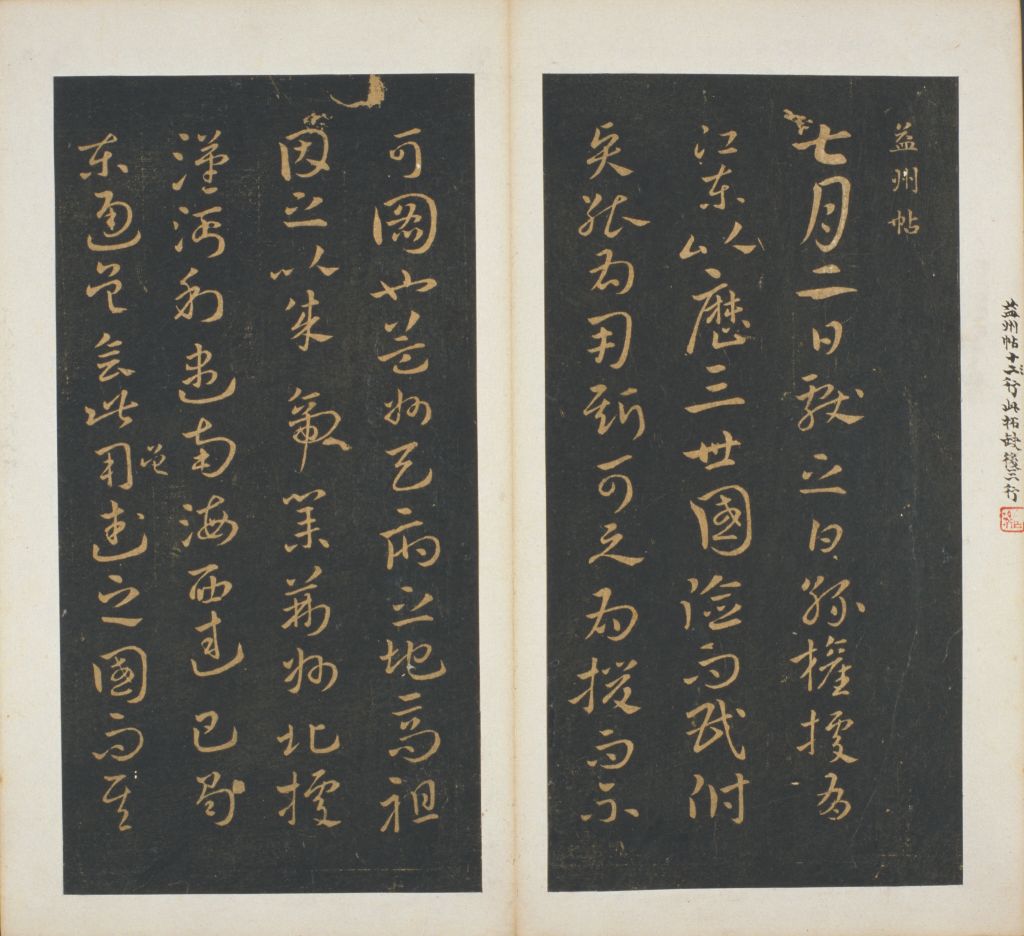 益州帖
七月二日獻之白孫權據有
江東以歷三世國險而民附
賢能為用斯可與為援而不
可圖也益州天府之地高祖
因之以成帝業荊州北據
漢沔利盡南海西達巴蜀
東通吳會此用武之國而其
益州帖十二行此拓缺後三行